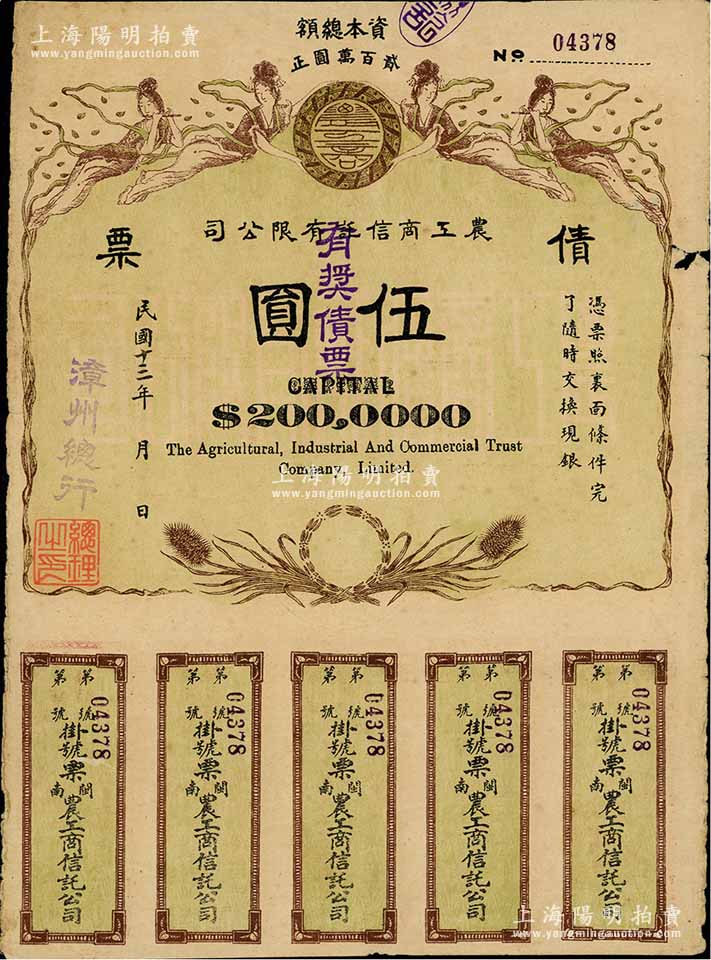 上海陽明拍賣
www.yangmingauction.com
資本總額
貳百萬圓正
No 04378
農工商信託有限公司
債票
伍圓
有獎債票
憑票照裏面條件完
了隨時交換現銀
民國十三年 月 日
漳州總行
總理之印
CAPITAL
$200,0000
The Agricultural, Industrial And Commercial Trust
Company, Limited.
上海陽明拍賣
www.yangmingauction.com
第 號
第 號
04378
掛號票
閩南農工商信託公司
第 號
第 號
04378
掛號票
閩南農工商信託公司
第 號
第 號
04378
掛號票
閩南農工商信託公司
第 號
第 號
04378
掛號票
閩南農工商信託公司
第 號
第 號
04378
掛號票
閩南農工商信託公司
上海陽明拍賣
www.yangmingauction.com